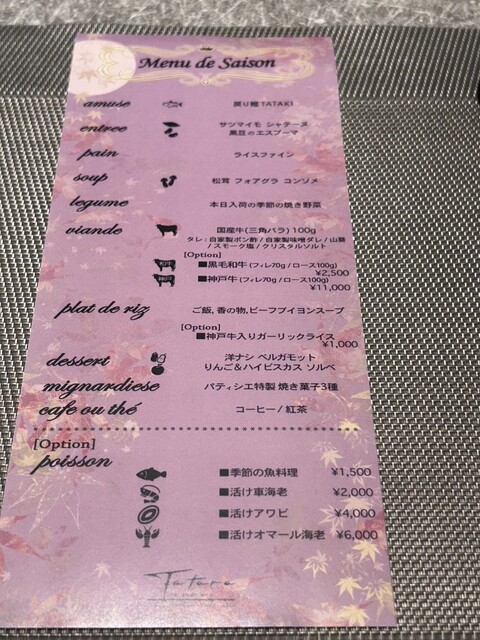 Menu de Saison
amuse 炭U鰹TATAKI
entree サツマイモ シャテーヌ
黒豆のエスプーマ
pain ライスファイン
soup 松茸 フォアグラ コンソメ
legume 本日入荷の季節の焼き野菜
viande 国産牛(三角バラ) 100g
タレ : 自家製ポン酢 / 自家製味噌ダレ / 山葵
/ スモーク塩 / クリスタルソルト
[Option]
■黒毛和牛 (フィレ70g / ロース100g)
¥2,500
■神戸牛 (フィレ70g / ロース100g)
¥11,000
plat de riz ご飯, 香の物, ビーフブイヨンスープ
[Option]
■神戸牛入りガーリックライス
¥1,000
dessert 洋ナシ ベルガモット
りんご&ハイビスカス ソルベ
mignardiese パティシエ特製 焼き菓子3種
cafe ou thé コーヒー / 紅茶
[Option]
poisson
■季節の魚料理 ¥1,500
■活け車海老 ¥2,000
■活けアワビ ¥4,000
■活けオマール海老 ¥6,000
Tatara